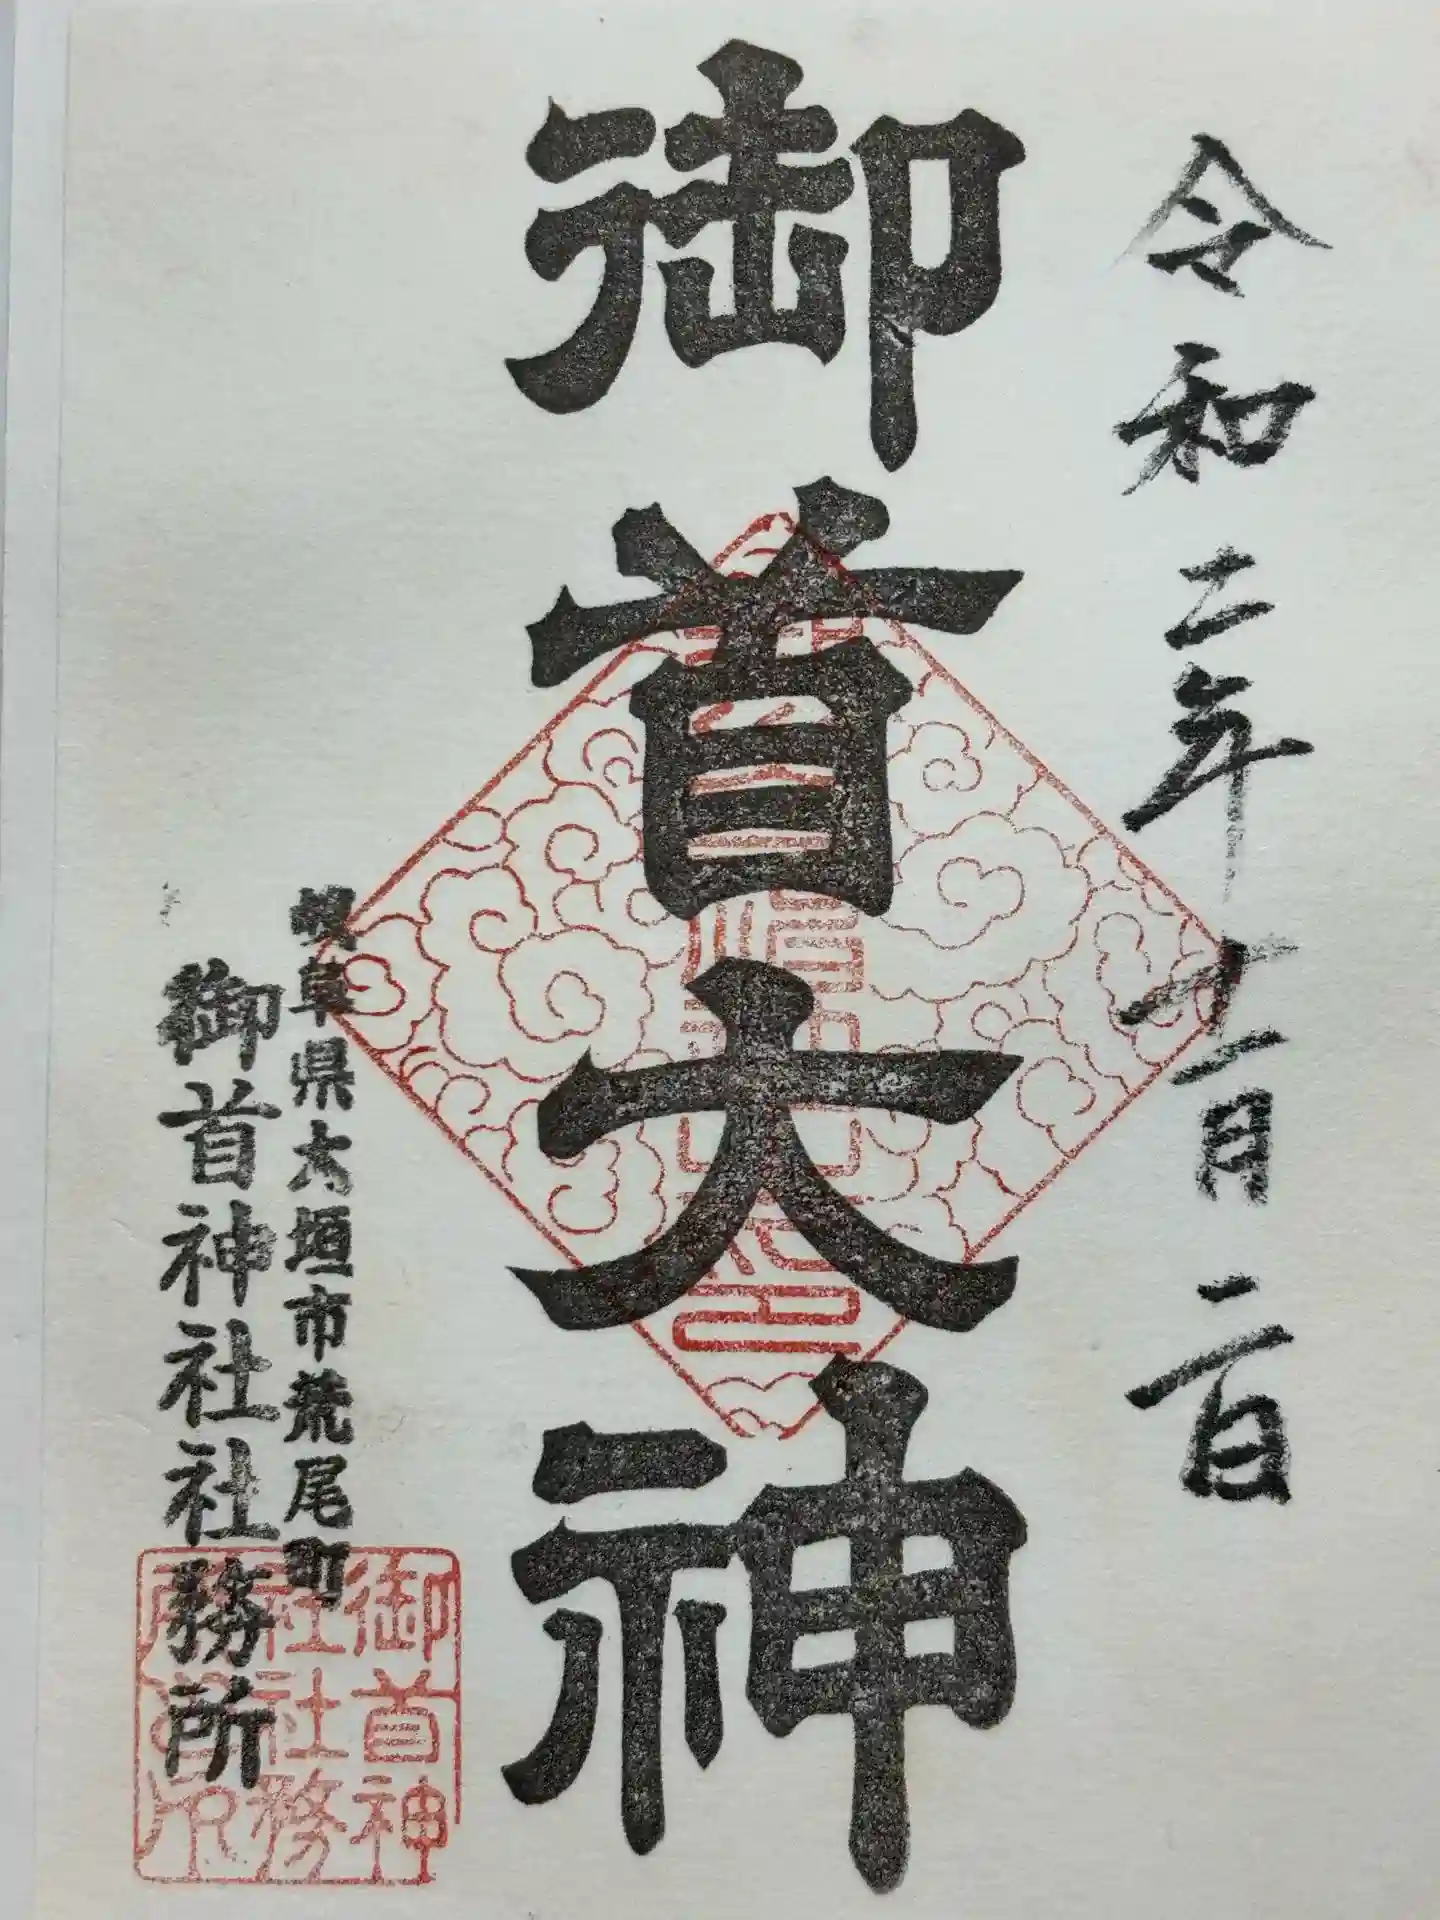 令和二年十二月二日
御首大神
岐阜県大垣市荒尾町
御首神社社務所
御首神
社社務
所之印